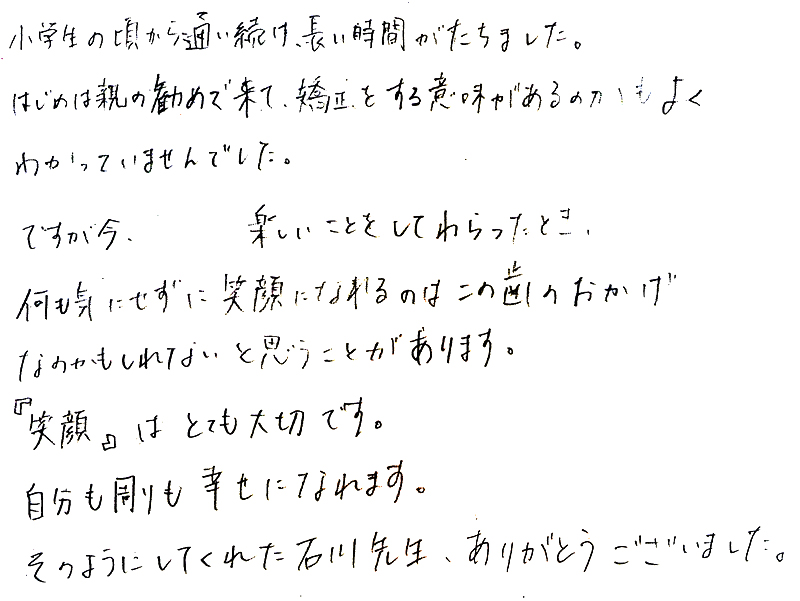 小学生の頃から通い続け、長い時間がたちました。
はじめは親の勧めで来て、矯正をする意味があるのかもよく
わかっていませんでした。
ですが今、 楽しいことをしてわらったとき、
何も気にせずに笑顔になれるのはこの歯のおかげ
なのかもしれないと思うことがあります。
『笑顔』はとても大切です。
自分も周りも幸せになれます。
そのようにしてくれた石川先生、ありがとうございました。